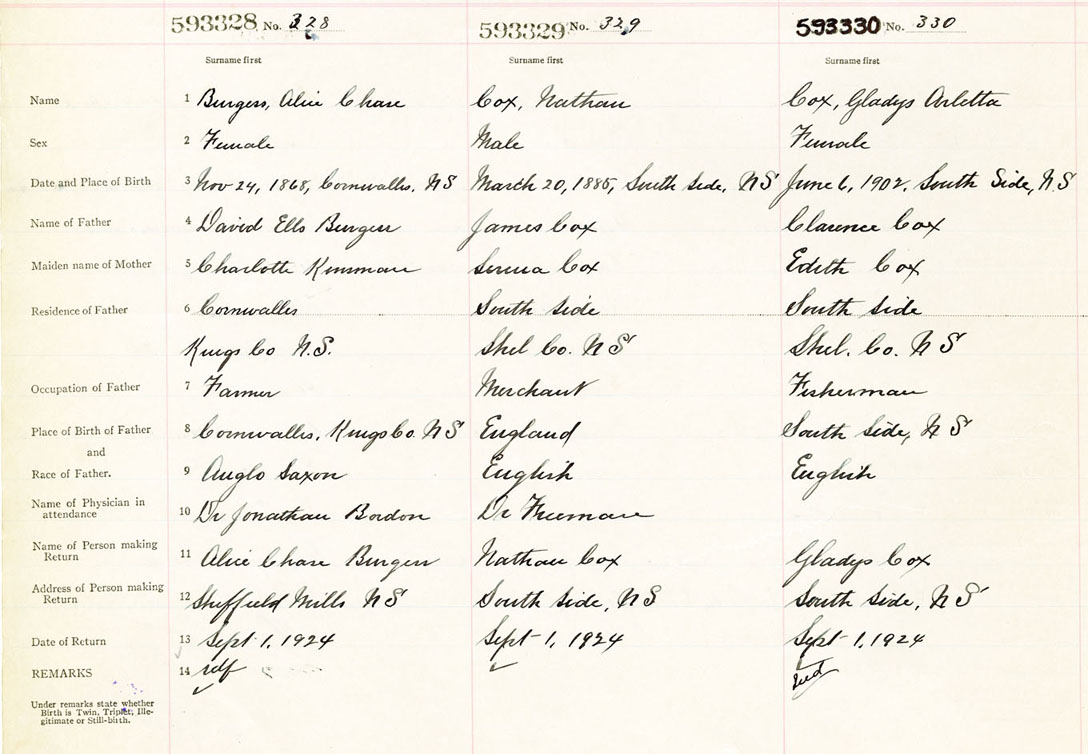 593328 No. 328 593329 No. 329 593330 No. 330
Surname first Surname first Surname first
Name 1 Burgess, Alice Chase Cox, Nathan Cox, Gladys Arletta
Sex 2 Female Male Female
Date and Place of Birth 3 Nov 24, 1868, Cornwallis, NS March 20, 1885, South Side, NS June 6, 1902, South Side, N.S
Name of Father 4 David Ells Burgess James Cox Clarence Cox
Maiden name of Mother 5 Charlotte Kinsman Serena Cox Edith Cox
Residence of Father 6 Cornwallis South Side South Side
Kings Co N.S. Shel Co. N S Shel. Co. N S
Occupation of Father 7 Farmer Merchant Fisherman
Place of Birth of Father 8 Cornwallis, Kings Co. NS England South Side, N S
and
Race of Father. 9 Anglo Saxon English English
Name of Physician in
attendance 10 Dr Jonathan Bordon Dr Freeman
Name of Person making
Return 11 Alice Chase Burgess Nathan Cox Gladys Cox
Address of Person making
Return 12 Sheffield Mills NS South Side, NS South Side, N S
Date of Return 13 Sept 1, 1924 Sept 1, 1924 Sept 1, 1924
REMARKS 14 self
Under remarks state whether
Birth is Twin, Triplet, Ille-
gitimate or Still-birth.